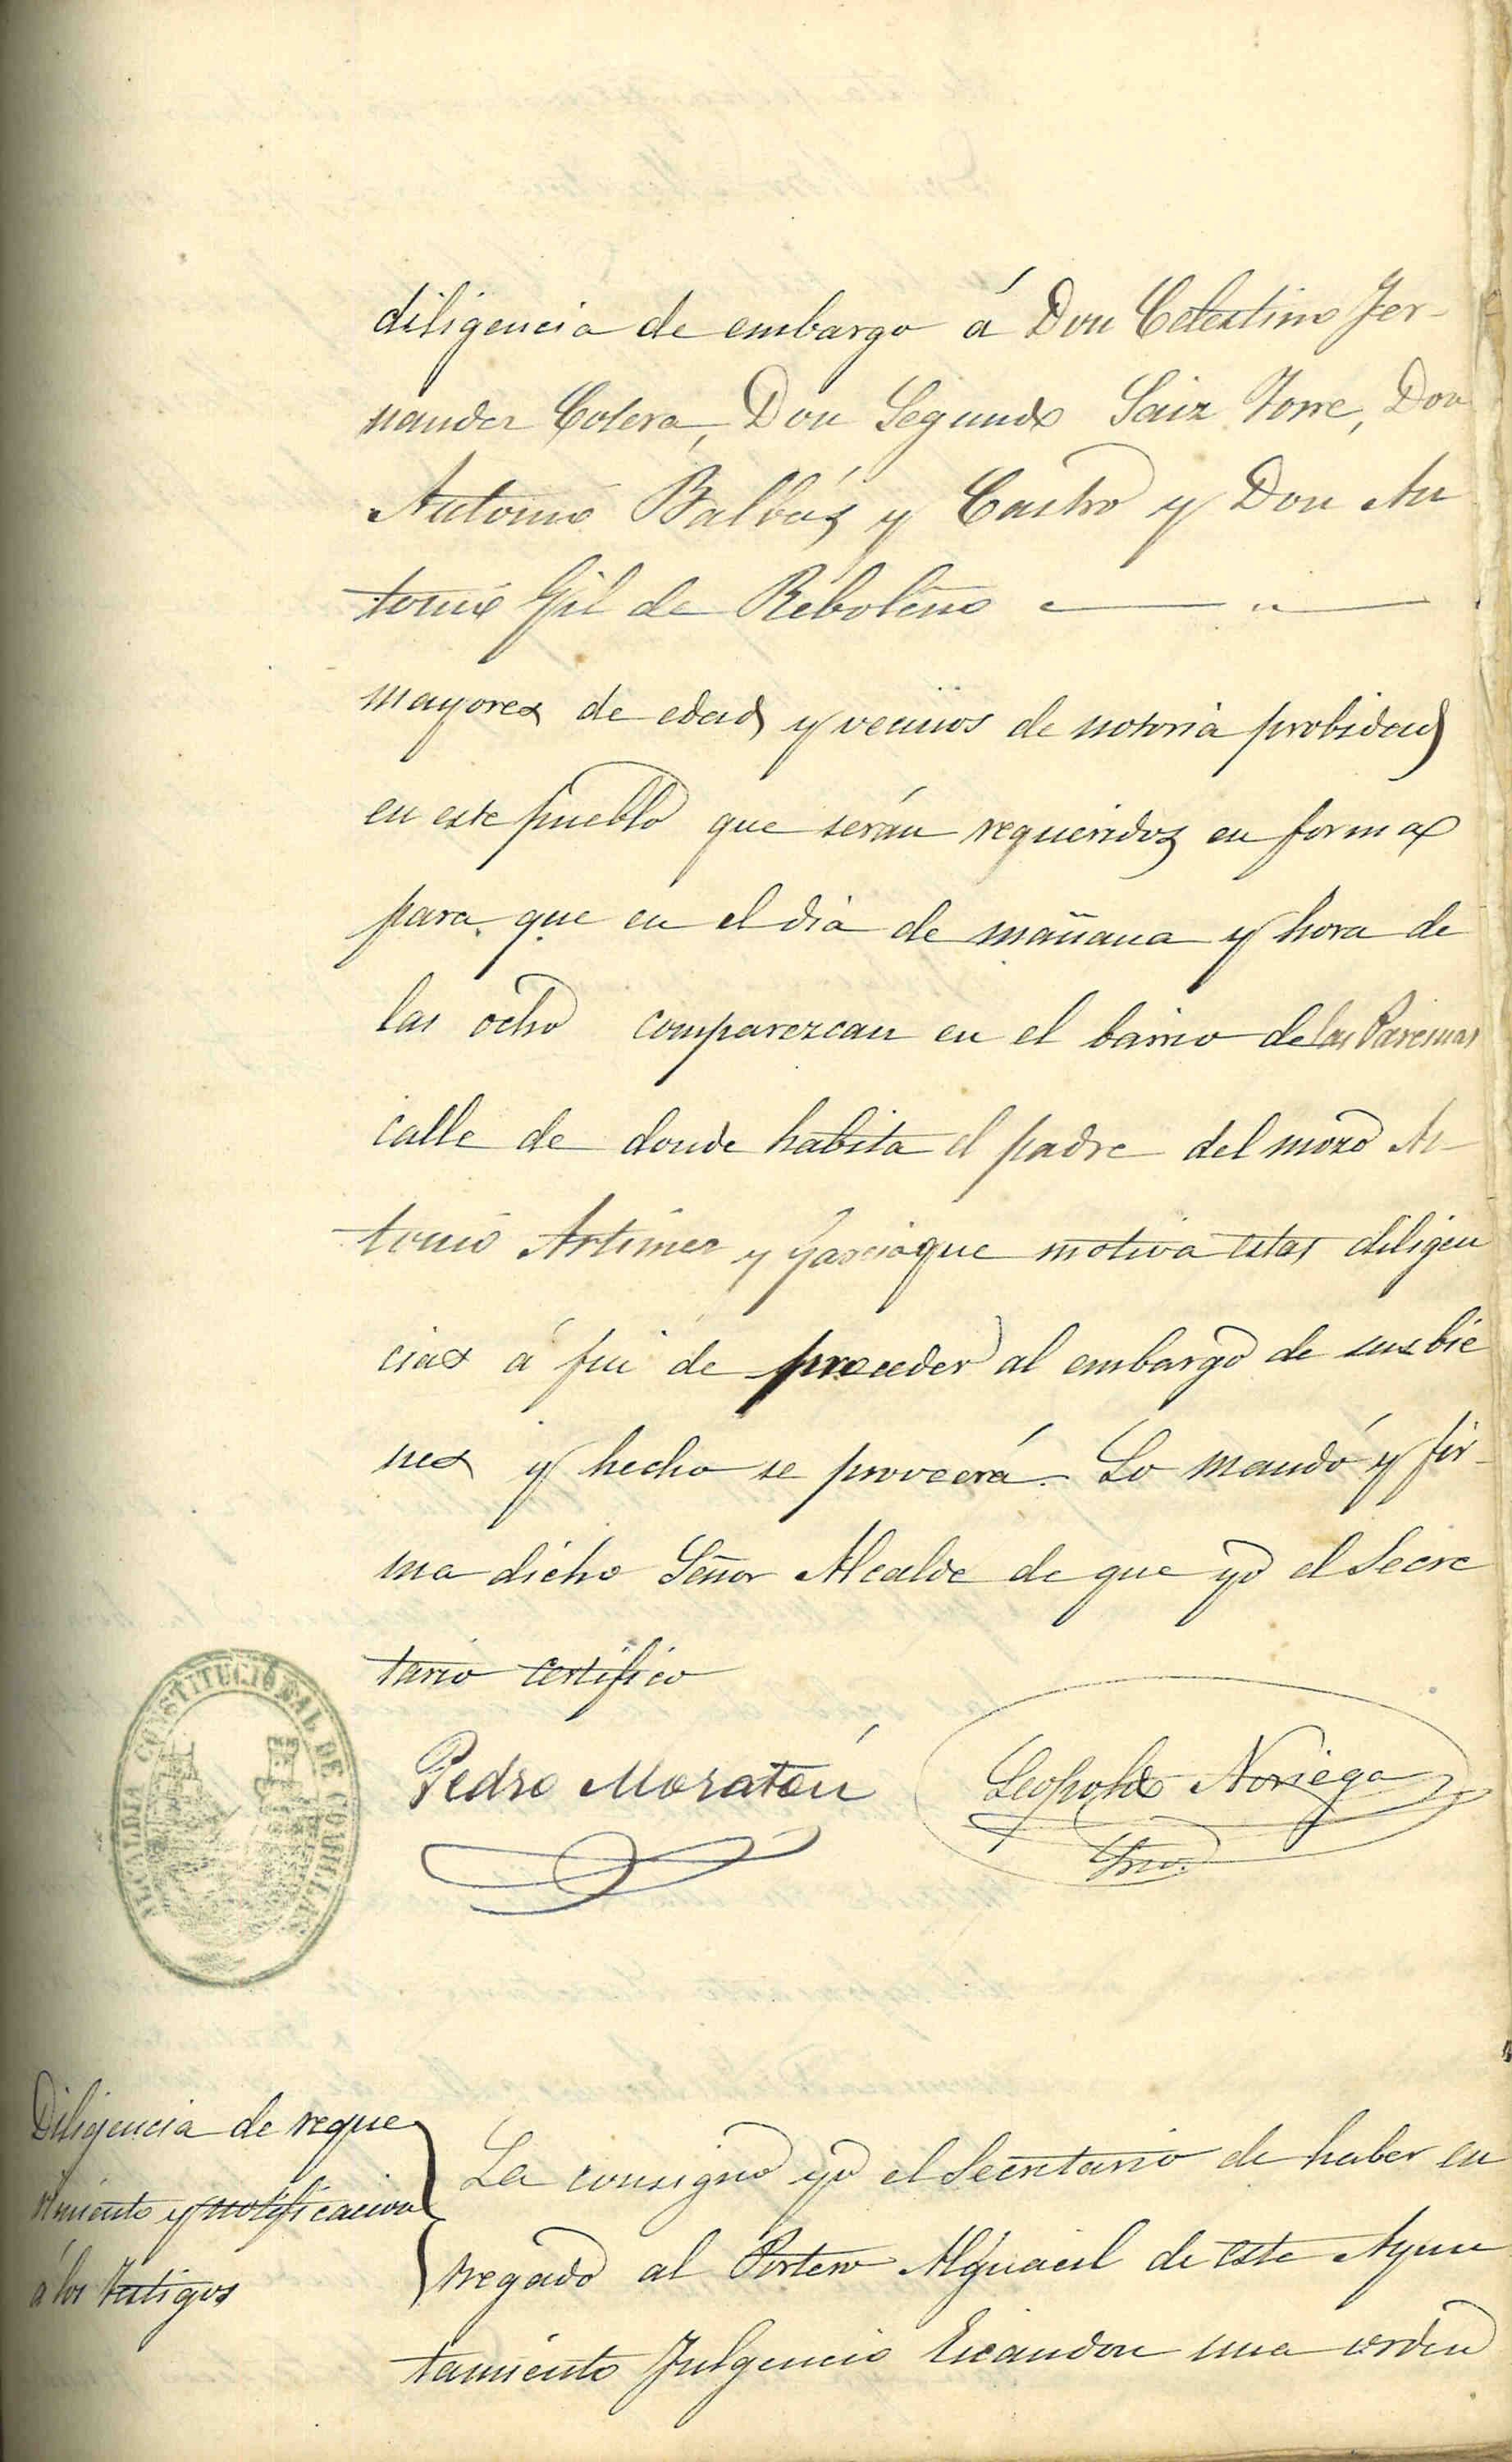 diligencia de embargo á Don Celestino Fer-
nandez Cotera, Don Segundo Saiz Torre, Don
Antonio Balbás y Castro y Don An
tonio Gil de Reboleño
mayores de edad y vecinos de notoria probidad
en este pueblo que serán requeridos en forma
para que en el dia de mañana y hora de
las ocho comparezcan en el barrio de las
calle de donde habita el padre del mozo An-
tonio Artimez y Garcia que motiva estas diligen
cias á fin de proceder al embargo de sus bie
nes y hecho se proveerá. Lo mandó y fir-
ma dicho Señor Alcalde de que yo el Secre
tario certifico
ALCALDIA CONSTITUCIONAL DE COMILLAS
Pedro Moratón
Leopoldo Noriega
Srio.
Diligencia de reque
rimiento y notificacion
á los testigos
La consigno yo el Secretario de haber en
tregado al Portero Alguacil de este Ayun
tamiento Fulgencio Escandon una orden